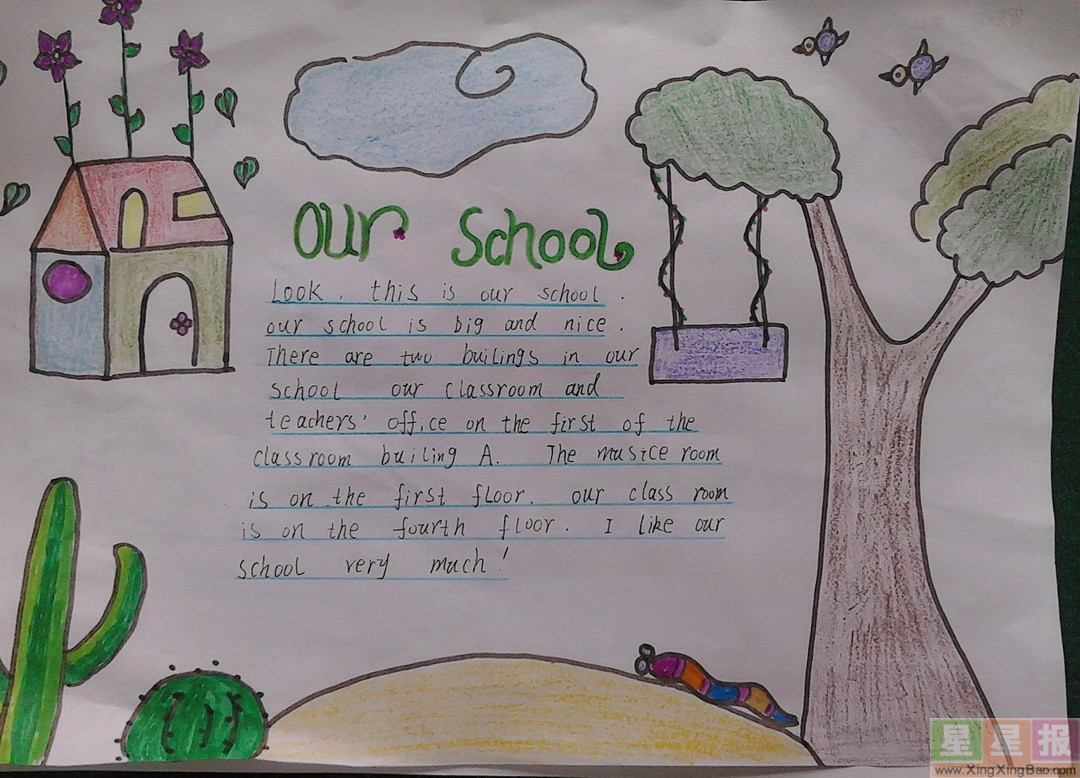 our school
Look. this is our school.
our school is big and nice.
There are two builings in our
school our classroom and
teachers' office on the first of the
classroom builing A. The musice room
is on the first floor. our class room
is on the fourth floor. I like our
school very much!
星星报
www.XingXingBao.com